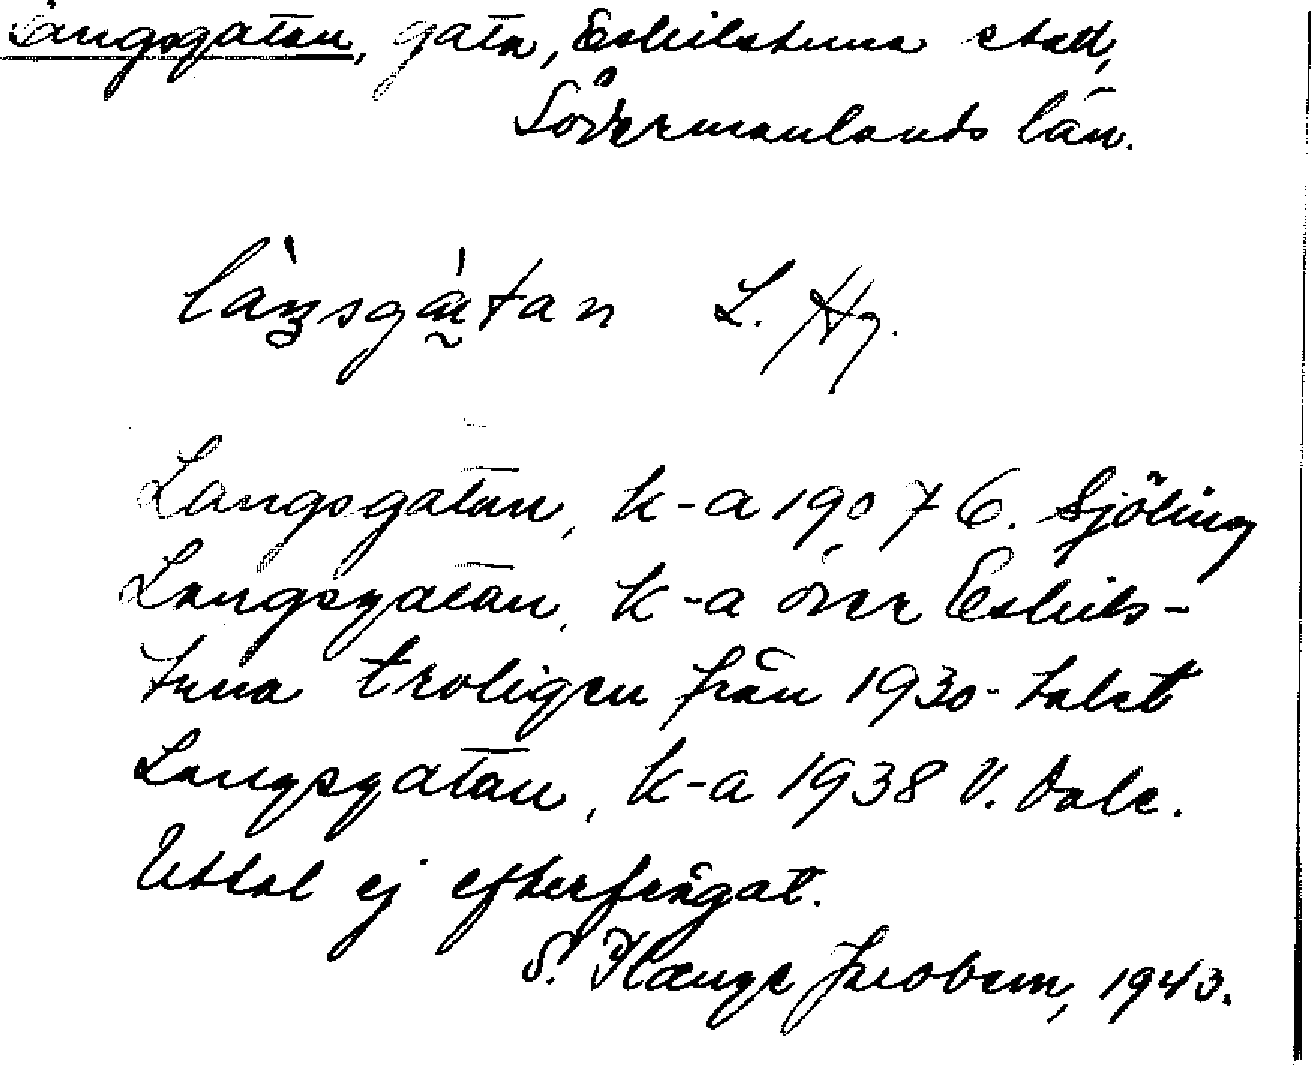 Långsgatan, gata, Eskilstuna stad,
Södermanlands län.
L. Hg.
Långsgatan, k-a 1907 G. Sjöling
Långsgatan, k-a över Eskils-
tuna troligen från 1930-talet
Långsgatan, k-a 1938 V. Dale.
Uttal ej efterfrågat.
S. Hange Jacobsson, 1943.